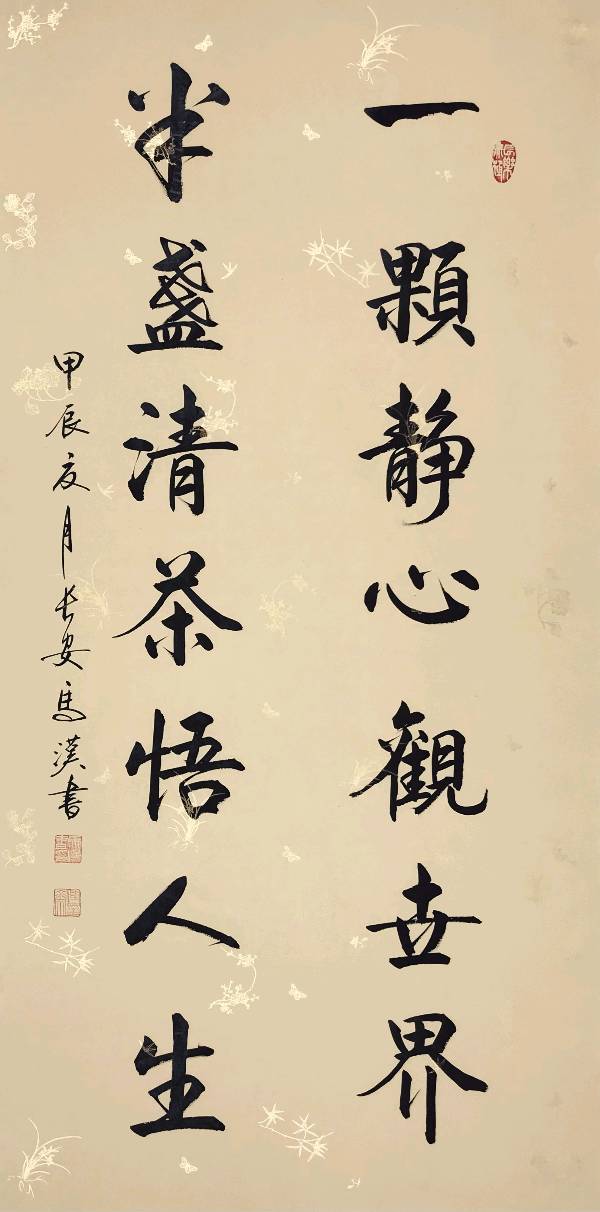 一顆靜心觀世界
半盞清茶悟人生
甲辰夏月長安馬漢書